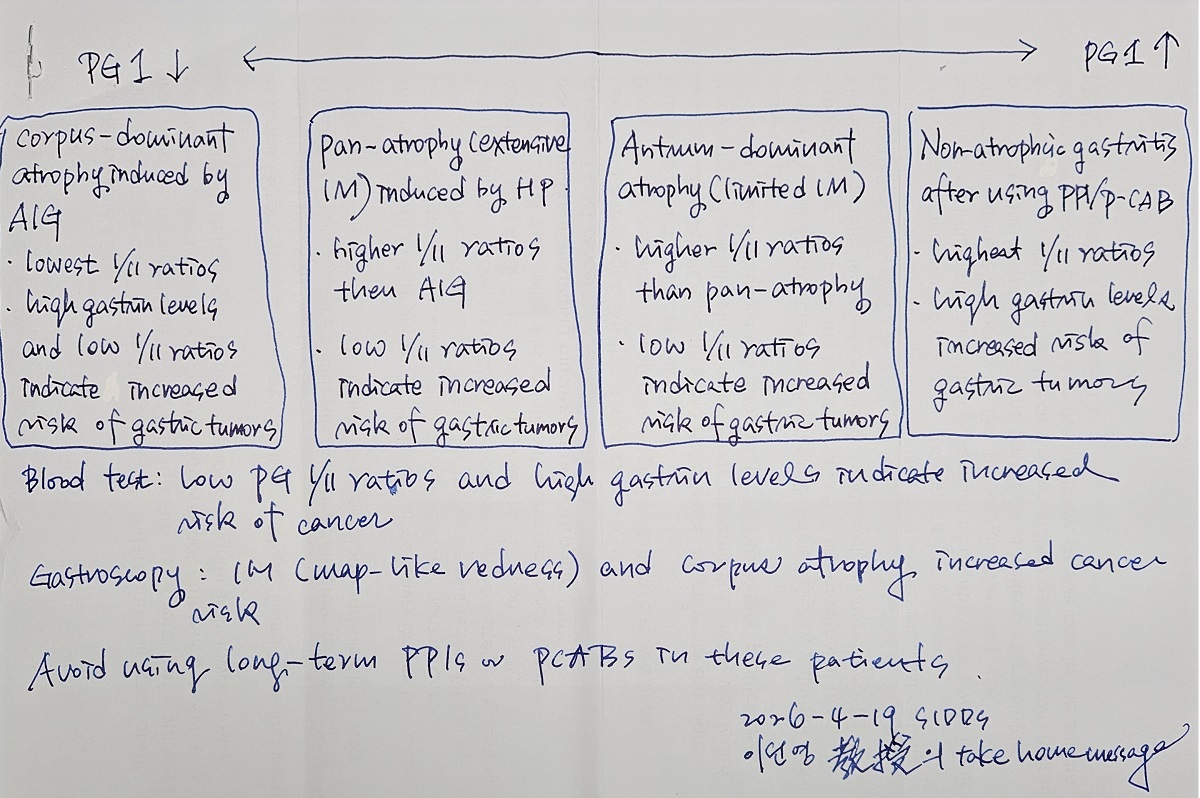 PG1 ↓ ⟷ PG1 ↑
corpus-dominant
atrophy induced by
AIG
· lowest I/II ratios
· high gastrin levels
and low I/II ratios
indicate increased
risk of gastric tumors
Pan-atrophy (extensive
IM) induced by HP.
· higher I/II ratios
then AIG
· low I/II ratios
indicate increased
risk of gastric tumors
Antrum-dominant
atrophy (limited IM)
· higher I/II ratios
than pan-atrophy
· low I/II ratios
indicate increased
risk of gastric tumors
Non-atrophic gastritis
after using PPI/P-CAB
· highest I/II ratios
· high gastrin levels
increased risk of
gastric tumors
Blood test: low PG I/II ratios and high gastrin levels indicate increased
risk of cancer
Gastroscopy: IM (map-like redness) and corpus atrophy increased cancer
risk
Avoid using long-term PPIs or PCABs in these patients.
2026-4-19 SIDDS
이선영 教授의 take home message